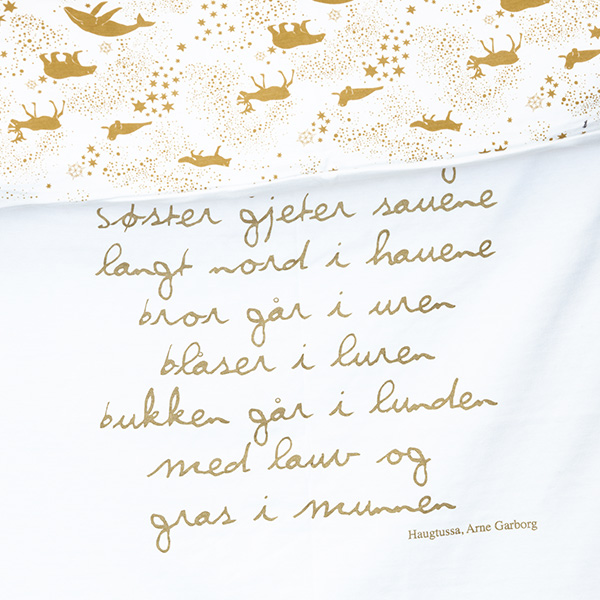 søster gjeter sauene
langt nord i hauene
bror går i uren
blåser i luren
bukken går i lunden
med lauv og
gras i munnen
Haugtussa, Arne Garborg